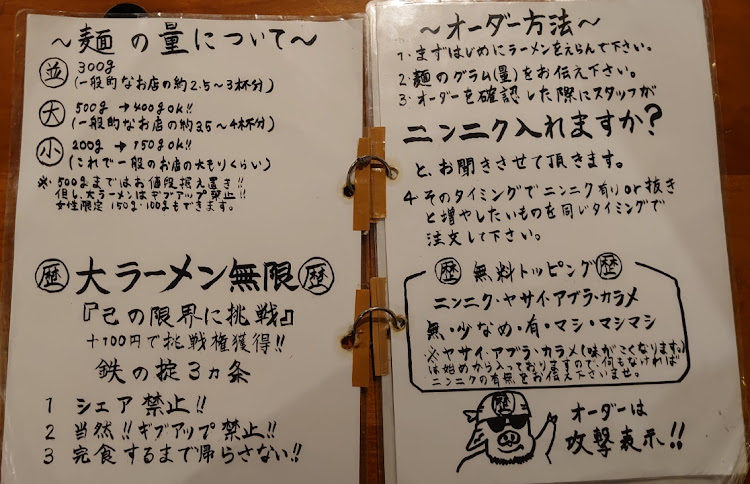 ～麺の量について～
並 300g
(一般的なお店の約2.5～3杯分)
大 500g → 400gok!!
(一般的なお店の約3.5～4杯分)
小 200g → 150gok!!
(これで一般のお店の大もりくらい)
※500gまではお値段据え置き!!
但し、大ラーメンはギブアップ禁止!!
女性限定 150g・100gもできます。
歴 大ラーメン無限 歴
『己の限界に挑戦』
+100円で挑戦権獲得!!
鉄の掟3ヵ条
1 シェア禁止!!
2 当然!!ギブアップ禁止!!
3 完食するまで帰らさない!!
～オーダー方法～
1.まずはじめにラーメンをえらんで下さい。
2.麺のグラム(量)をお伝え下さい。
3.オーダーを確認した際にスタッフが
ニンニク入れますか?
と、お聞きさせて頂きます。
4.そのタイミングでニンニク有りor抜き
と増やしたいものを同じタイミングで
注文して下さい。
歴 無料トッピング 歴
ニンニク・ヤサイ・アブラ・カラメ
無・少なめ・有・マシ・マシマシ
※ヤサイ・アブラ・カラメ(味がこくなります。)
は始めから入っておりますので、何もなければ
ニンニクの有無をお伝え下さいませ。
歴
オーダーは
攻撃表示!!